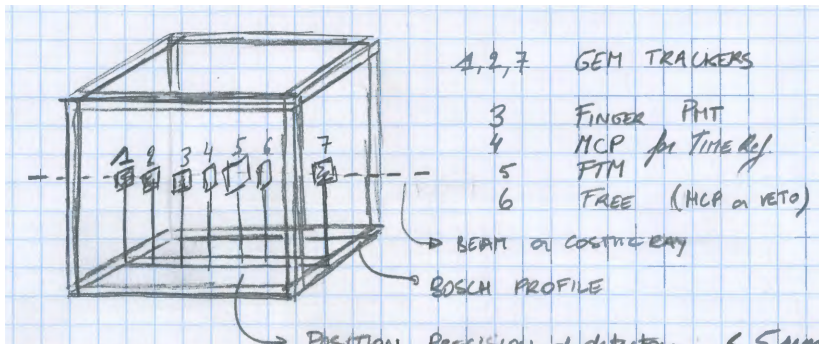 1,2,7 GEM TRACKERS
3 FINGER PMT
1 2 3 4 5 6 7
4 MCP for TIME Ref.
5 FTM
6 FREE (MCP or VETO)
BEAM or COSMIC RAY
BOSCH PROFILE
POSITION PRECISION of detectors